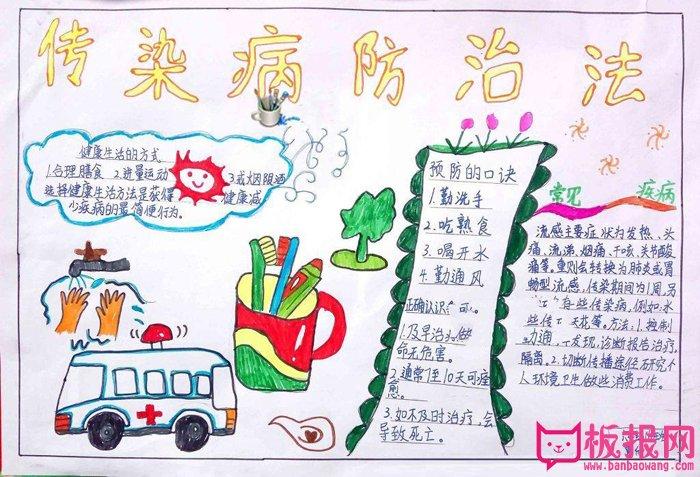 传染病防治法
健康生活的方式
1.合理膳食 2.适量运动 3.戒烟限酒
选择健康生活方法是获得健康减
少疾病的最简便行为。
预防的口诀
1.勤洗手
2.吃熟食
3.喝开水
4.勤通风
正确认识
1.及早治
命无危害。
2.通常7至10天可痊
愈
3.如不及时治疗,会
导致死亡。
常见 疾病
流感主要症状为发热、头
痛、流涕、烟痛、干咳、关节酸
痛等,重则会转换为肺炎或胃
肠型流感,传染期间为1周,另
有些传染病,例如:水
天花等。方法:1.控制
发现,诊断报告治疗,
隔离。2.切断传播途径研究个
人环境卫生做些消费工作。
板报网
www.banbaowang.com